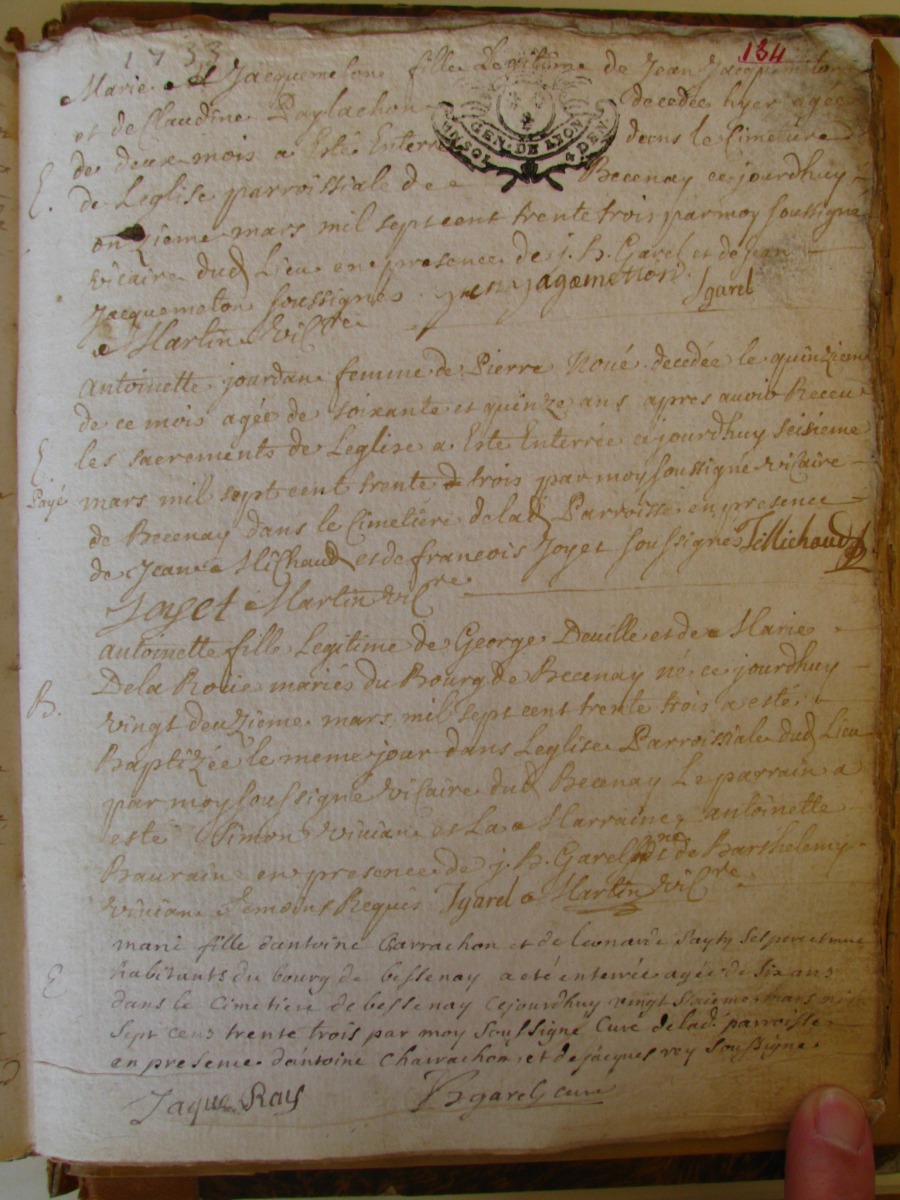 1733
134
Marie Jacquemeton fille Legitime de Jean Jacquemeton
GEN. DE LYON
et de Claudine decedée hyer agée
de deux mois a Esté Enterrée dans le Cimetiere
E.
de Leglise parroissiale de Becenay cejourdhuy
onzieme mars mil sept cent trente trois par moy soussigné
vicaire dud Lieu en presence de j. h. Garel et de Jean
Jacquemeton soussignés jagometton Jgarel
Martin vicre
Antoinette jourdan femme de Pierre Noué decedée le quinzieme
de ce mois agée de soixante et quinze ans apres avoir Receu
E.
les sacrements de Leglise a Este Enterrée cejourdhuy seisieme
Payé
mars mil sept cent trente trois par moy soussigné vicaire
de Becenay dans le Cimetiere de lad Parroisse en presence
de Jean Michaud et de francois Joyet soussignés Michaud
Joyet Martin vicre
antoinette fille Legitime de George Deville et de Marie
Dela Roüe mariés du Bourg de Becenay né cejourdhuy
B.
vingt deuzieme mars mil sept cent trente trois a esté
Baptizée le meme jour dans Leglise Parroissiale dud Lieu
par moy soussigné vicaire dud Becenay Le parrain a
esté Simon vivian et La Marraine antoinette
Baurain en presence de j. h. Garel et de Barthelemy
vivian Temoins Requis Jgarel Martin vicre
marie fille dantoine Charrachon et de leonarde ses pere et mere
habitants du bourg de bessenay a eté enterrée agée de six ans
E
dans le Cimetiere de bessenay cejourdhuy vingt mars mil
sept cens trente trois par moy soussigné Curé de lad. parroisse
en presence dantoine Charrachon et de jacques rey soussigné
Jaque Ray garel curé